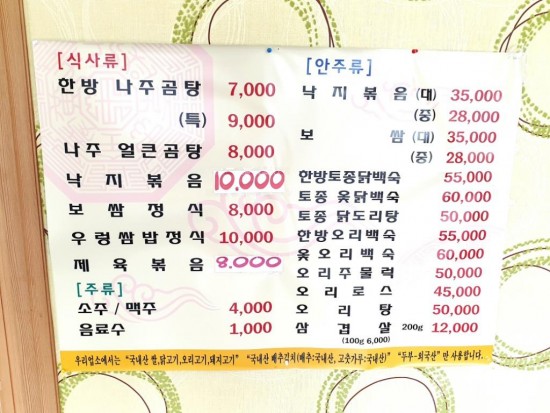 [식사류]
한방 나주곰탕 7,000
(특) 9,000
나주 얼큰곰탕 8,000
낙지볶음 10.000
보쌈정식 8,000
우렁쌈밥정식 10,000
제육볶음 8.000
[주류]
소주 / 맥주 4,000
음료수 1,000
[안주류]
낙지볶음 (대) 35,000
(중) 28,000
보쌈 (대) 35,000
(중) 28,000
한방토종닭백숙 55,000
토종 옻닭백숙 60,000
토종 닭도리탕 50,000
한방오리백숙 55,000
옻오리백숙 60,000
오리주물럭 50,000
오리로스 45,000
오리탕 50,000
삼겹살 200g 12,000
(100g 6,000)
우리업소에서는 "국내산 쌀,닭고기,오리고기,돼지고기" "국내산 배추김치(배추:국내산, 고춧가루:국내산)" "두부-외국산" 만 사용합니다.